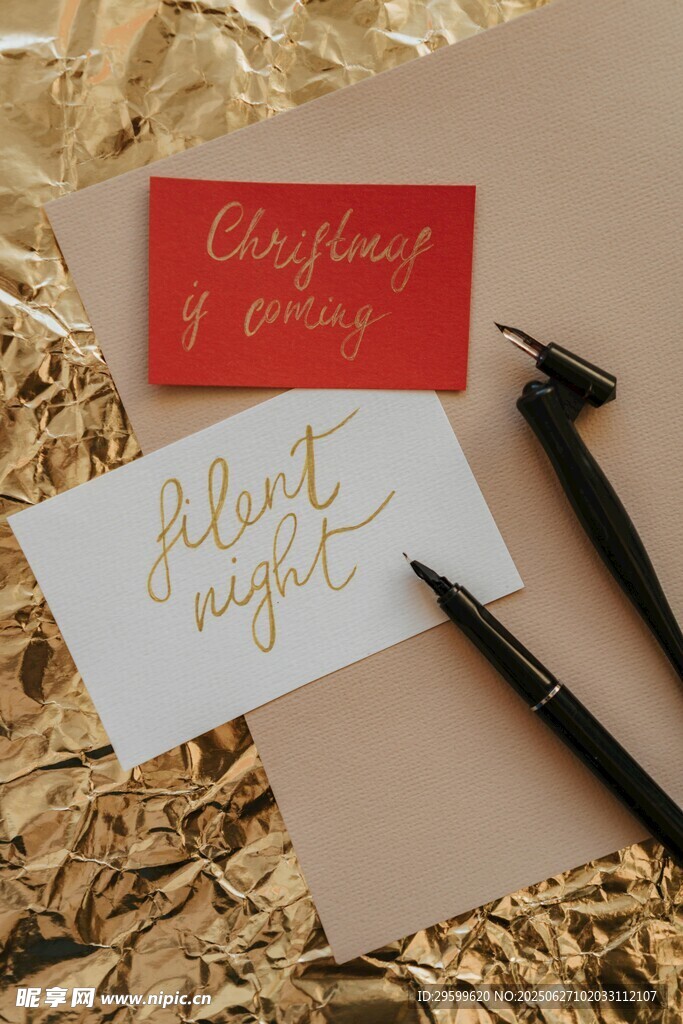 Christmas
is coming
silent
night
昵享网 www.nipic.cn
ID:29599620 NO:20250627102033112107